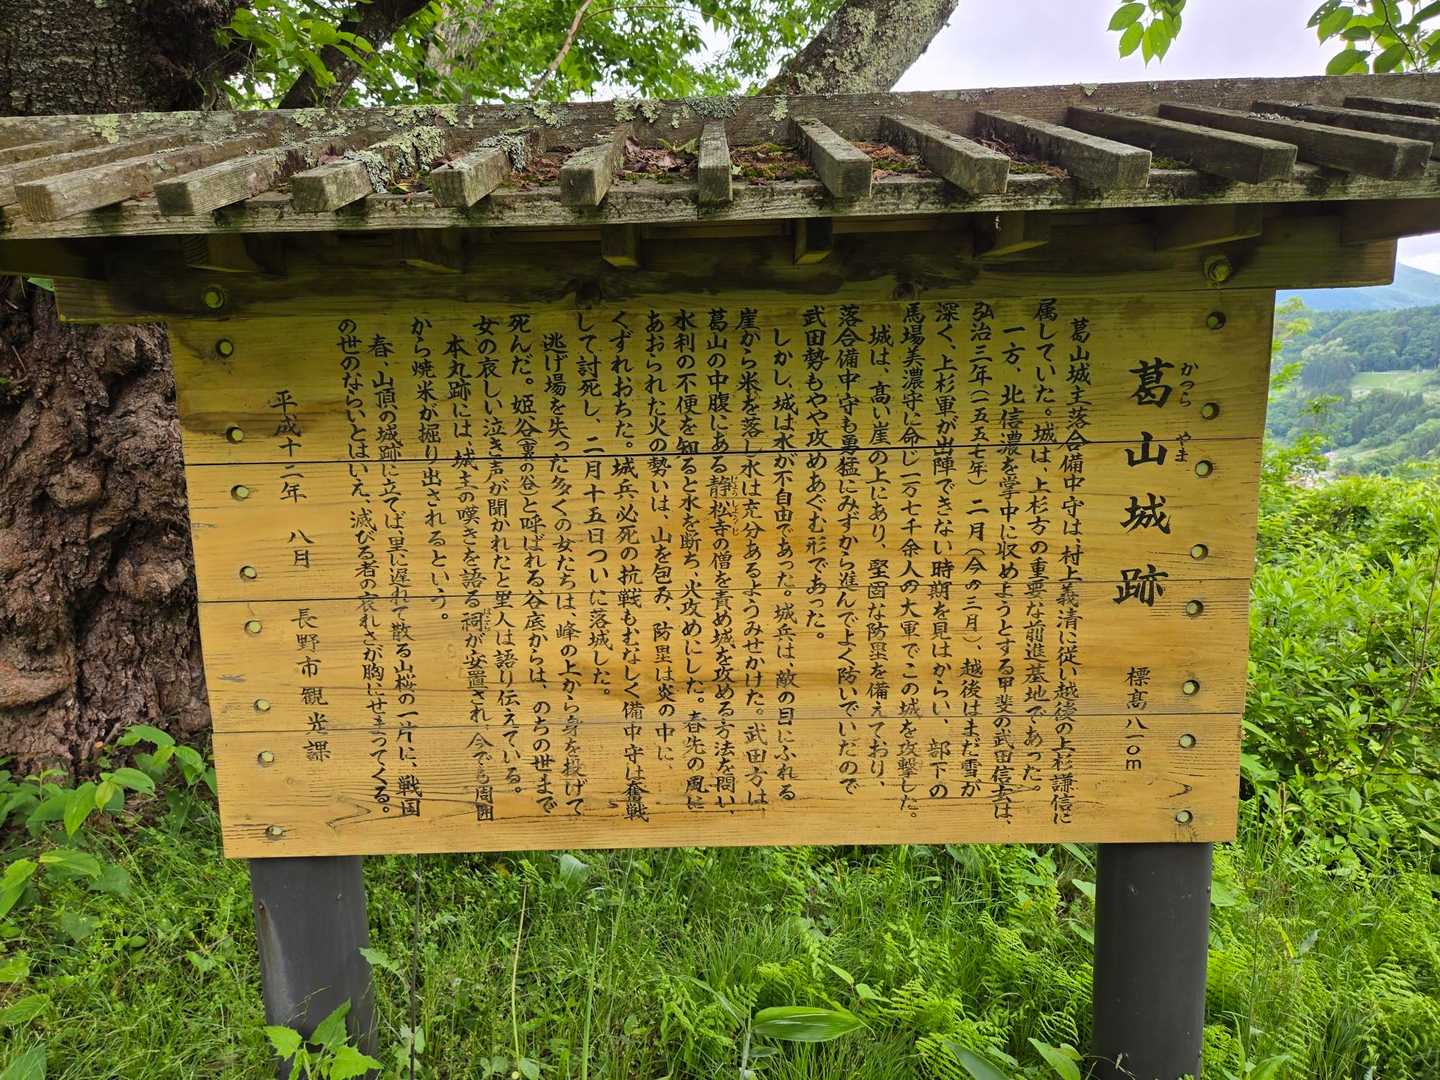 葛山城跡 標高八一〇m
かつら やま
葛山城主落合備中守は、村上義清に従い越後の上杉謙信に
属していた。城は、上杉方の重要な前進基地であった。
一方、北信濃を掌中に収めようとする甲斐の武田信玄は、
弘治三年(一五五七年)二月(今の三月)、越後はまだ雪が
深く、上杉軍が出陣できない時期を見はからい、部下の
馬場美濃守に命じ一万七千余人の大軍でこの城を攻撃した。
城は、高い崖の上にあり、堅固な防塁を備えており、
落合備中守も勇猛にみずから進んで上く防いでいだので
武田勢もやや攻めあぐむ形であった。
しかし、城は水が不自由であった。城兵は、敵の目にふれる
崖から米を落し水は充分あるようみせかけた。武田方は、
葛山の中腹にある静松寺の僧を責め城を攻める方法を問い、
じょうしょうじ
水利の不便を知ると水を断ち、火攻めにした。春先の風に
あおられた火の勢いは、山を包み、防塁は炎の中に、
くずれおちた。城兵、必死の抗戦もむなしく備中守は奮戦
して討死し、二月十五日ついに落城した。
逃げ場を失った多くの女たちは、峰の上から身を投げて
死んだ。姫谷(裏の谷)と呼ばれる谷底からは、のちの世まで
女の哀しい泣き声が聞かれたと里人は語り伝えている。
本丸跡には、城主の嘆きを語る祠が安置され、今でも周囲
ほこら
から焼米が掘り出されるという。
春、山頂の城跡に立てば里に遅れて散る山桜の一片に、戦国
の世のならいとはいえ、滅びる者の哀れさが胸にせまってくる。
平成十二年 八月 長野市観光課